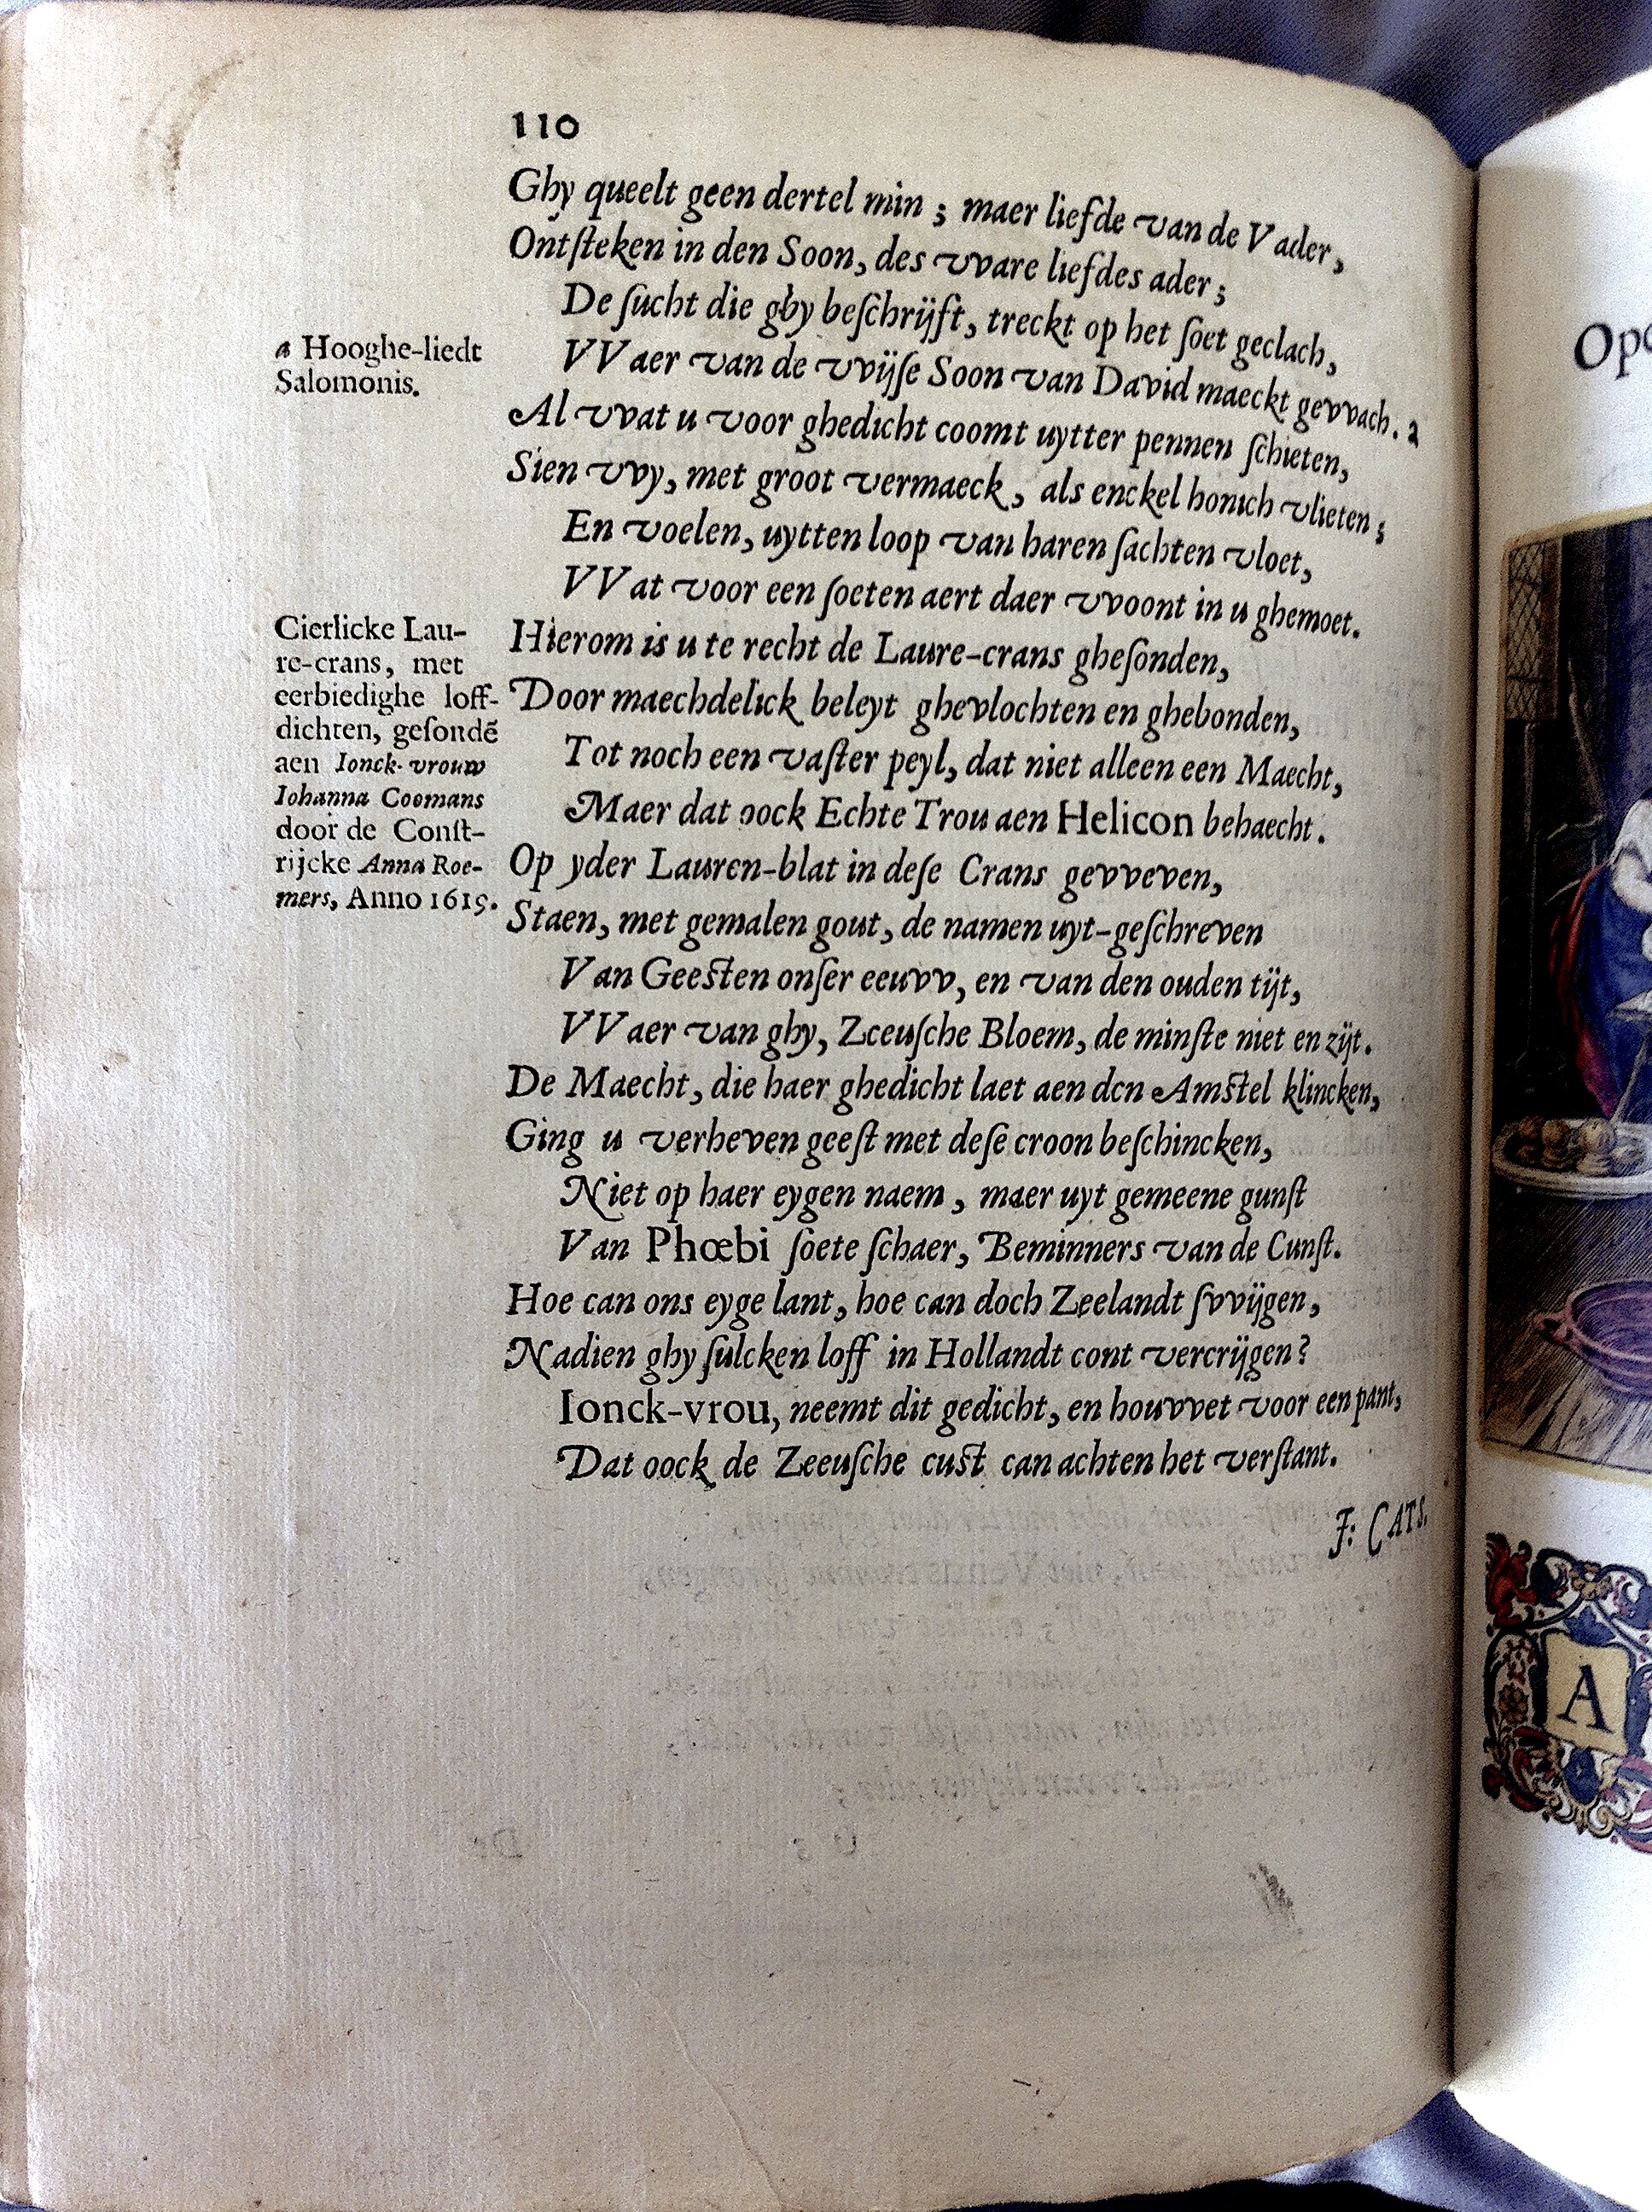 110
Ghy queelt geen dertel min ; maer liefde van de Vader,
Ontſteken in den Soon, des vvare liefdes ader ;
De ſucht die ghy beſchrijft, treckt op het ſoet geclach,
VVaer van de vvijſe Soon van David maeckt gevvach. a
Al vvat u voor ghedicht coomt uytter pennen ſchieten,
Sien vvy, met groot vermaeck, als enckel honich vlieten ;
En voelen, uytten loop van haren ſachten vloet,
VVat voor een ſoeten aert daer vvoont in u ghemoet.
Hierom is u te recht de Laure-crans gheſonden,
Door maechdelick beleyt ghevlochten en ghebonden,
Tot noch een vaſter peyl, dat niet alleen een Maecht,
Maer dat oock Echte Trou aen Helicon behaecht.
Op yder Lauren-blat in deſe Crans gevveven,
Staen, met gemalen gout, de namen uyt-geſchreven
Van Geeſten onſer eeuvv, en van den ouden tijt,
VVaer van ghy, Zeeuſche Bloem, de minſte niet en zijt.
De Maecht, die haer ghedicht laet aen den Amſtel klincken,
Ging u verheven geeſt met deſe croon beſchincken,
Niet op haer eygen naem, maer uyt gemeene gunſt
Van Phœbi ſoete ſchaer, Beminners van de Cunſt.
Hoe can ons eyge lant, hoe can doch Zeelandt ſvvijgen,
Nadien ghy ſulcken loff in Hollandt cont vercrijgen?
Ionck-vrou, neemt dit gedicht, en houvvet voor een pant,
Dat oock de Zeeuſche cuſt can achten het verſtant.
J: CATS.
a Hooghe-liedt
Salomonis.
Cierlicke Lau-
re-crans, met
eerbiedighe loff-
dichten, geſondẽ
aen Ionck-vrouw
Iohanna Coomans
door de Conſt-
rijcke Anna Roe-
mers, Anno 1619.
A